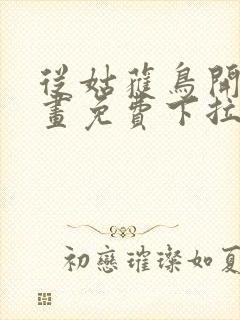 從姑蘿鳥開
畫免費下拉
初戀璀璨如夏